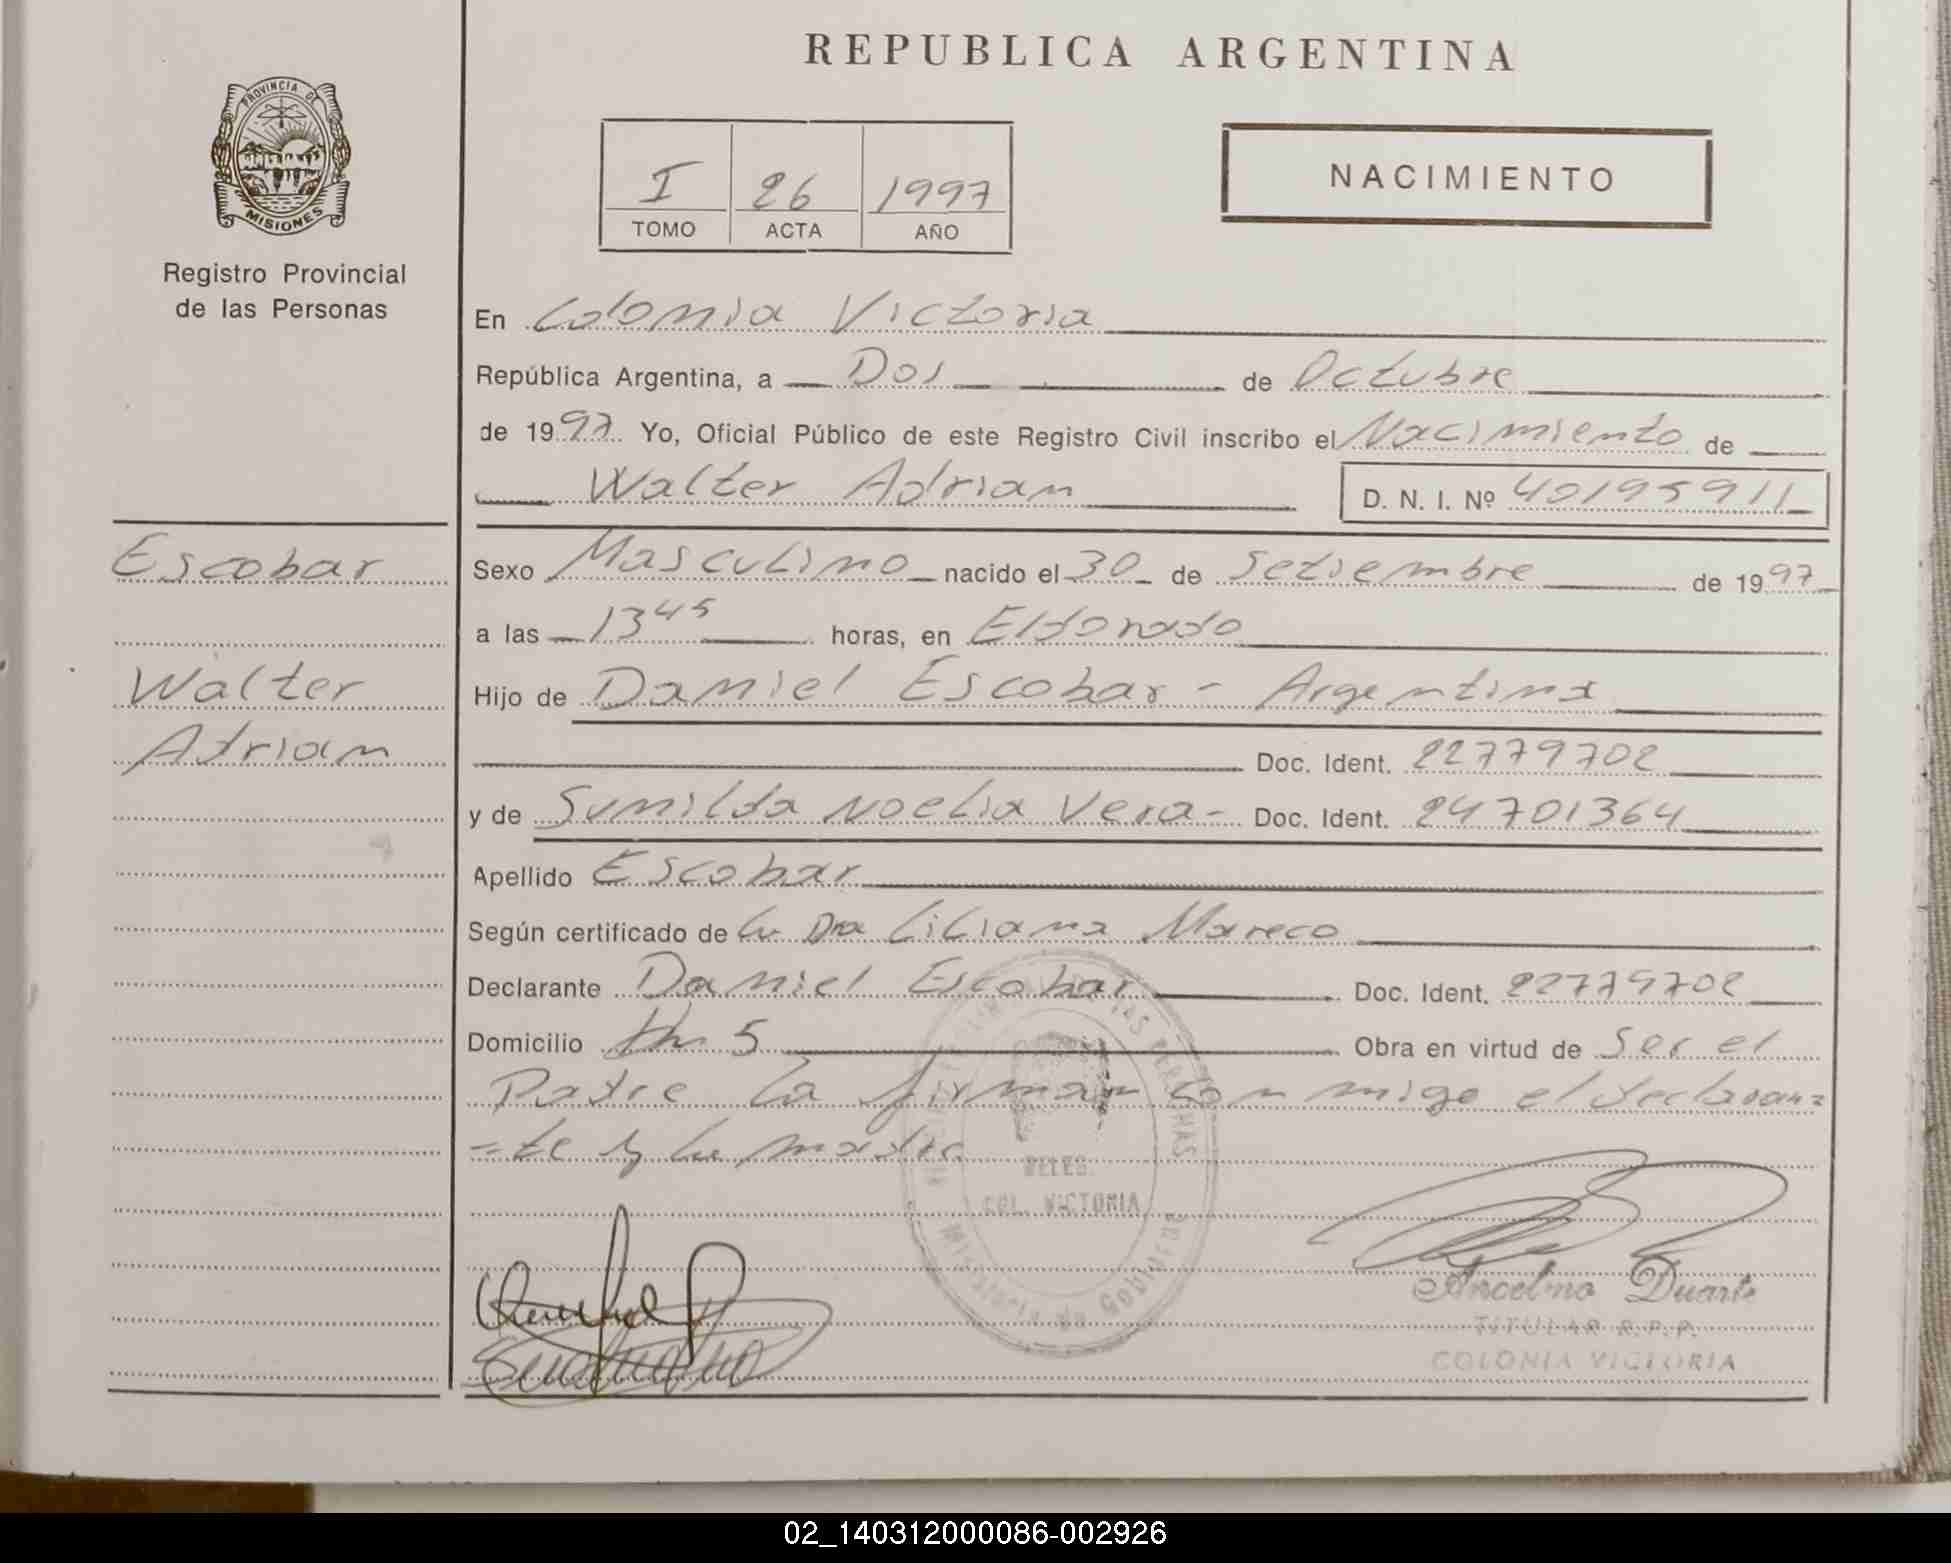 REPUBLICA ARGENTINA
PROVINCIA DE
MISIONES
Registro Provincial
de las Personas
I 26 1997
TOMO ACTA AÑO
NACIMIENTO
En Colonia Victoria
República Argentina, a Dos de Octubre
de 1997. Yo, Oficial Público de este Registro Civil inscribo el Nacimiento de
Walter Adrian D. N. I. Nº 40195911
Escobar
Walter
Adrian
Sexo Masculino nacido el 30 de Setiembre de 1997
a las 13 45 horas, en Eldorado
Hijo de Daniel Escobar - Argentina
Doc. Ident. 22779702
y de Sunilda Noelia Vera - Doc. Ident. 24701364
Apellido Escobar
Según certificado de la Dra Liliana Mareco
Declarante Daniel Escobar Doc. Ident. 22779702
Domicilio Km 5 Obra en virtud de Ser el
Padre La firman conmigo el declaran=
=te y la madre
DELEG.
COL. VICTORIA
Ministerio de Gobierno
Ancelmo Duarte
TITULAR R.P.P.
COLONIA VICTORIA
02_140312000086-002926